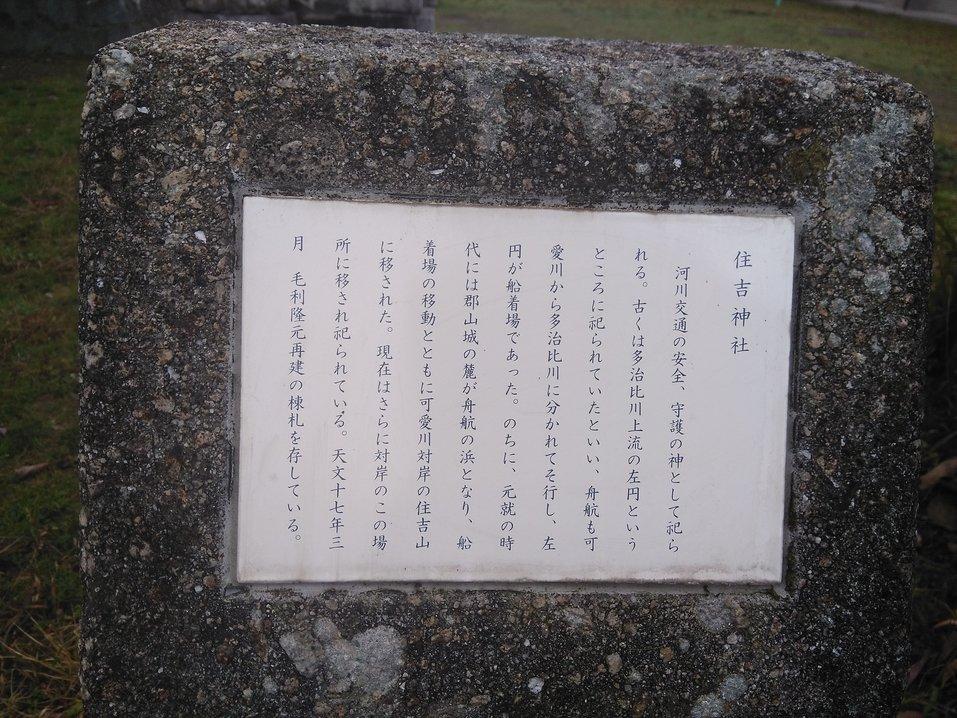 住吉神社
河川交通の安全、守護の神として祀ら
れる。古くは多治比川上流の左円という
ところに祀られていたといい、舟航も可
愛川から多治比川に分かれてそ行し、左
円が船着場であった。のちに、元就の時
代には郡山城の麓が舟航の浜となり、船
着場の移動とともに可愛川対岸の住吉山
に移された。現在はさらに対岸のこの場
所に移され祀られている。天文十七年三
月　毛利隆元再建の棟札を存している。